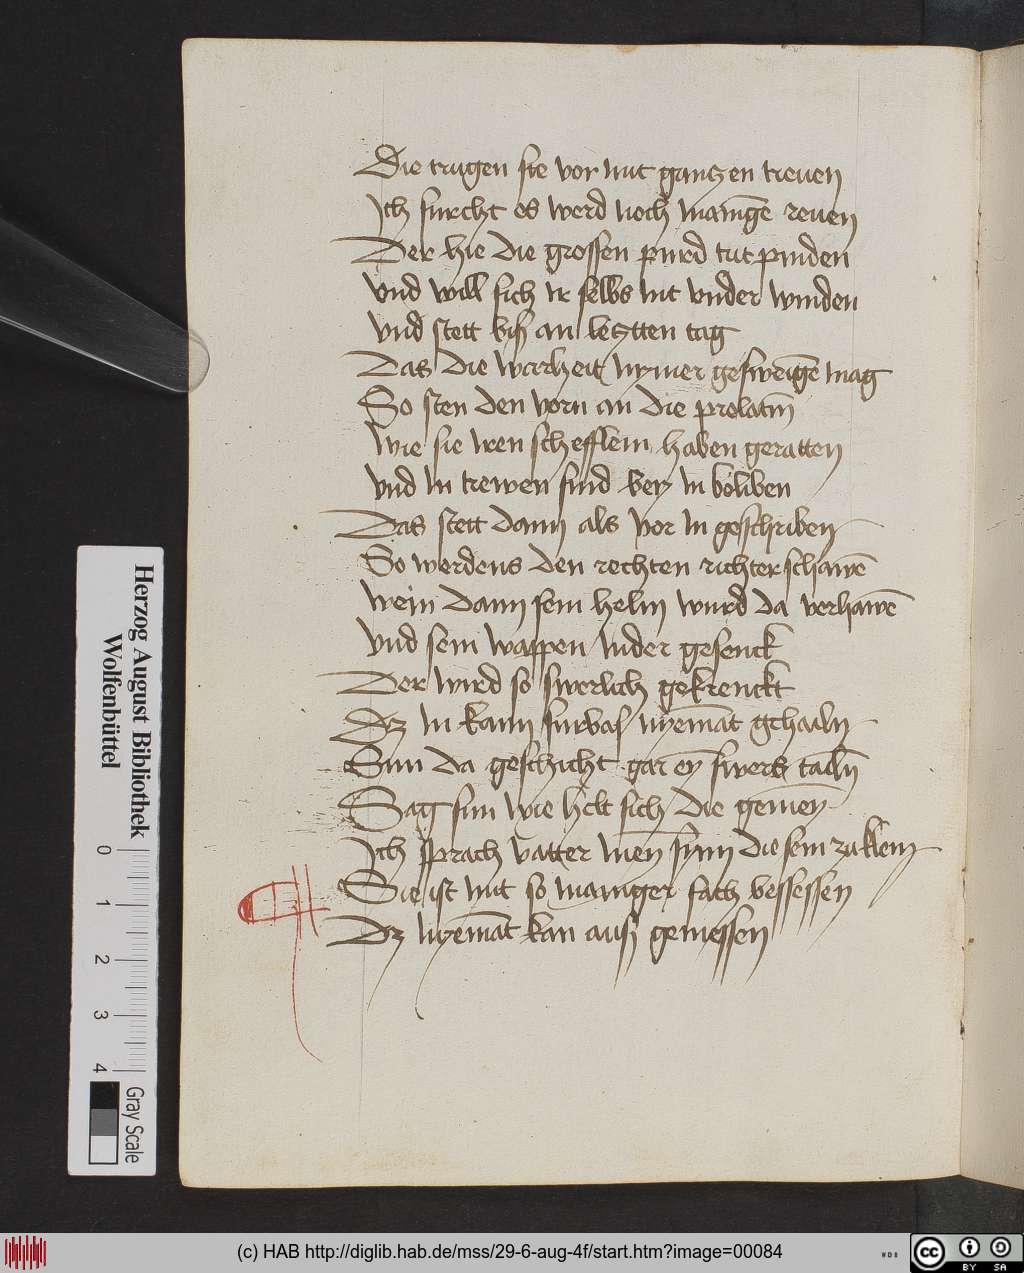 Die trugen sie vor mit gantzen treuen
Ich furcht es werd noch mainge͂ reuen
Der hie die grossen purd tut pinden
Vnd will sich ir selbs nit vnder winden
Vnd stett biß an letztten tag
Das die warheit nymer gesweige͂ mag
So sten den vorn an die prelatn̄
Wie sie iren schefflein haben geratten
Vnd in trewen sind bey in beliben
Das stett dann als vor in geschriben
So werdens den rechten richter schawe͂
Wein dann sein helm wurd da verhawe͂
Vnd sein wappen nider gesenck
Der wird so swerlich gekrenckt
Dz in kann furbaß nyema͂t gehailn
Sun da geschicht gar ey͂ swers tailn̄
Sag sun wie helt sich die gemey͂
Ich sprach vatter mein synn die sein zu klein
Sie ist mit so mainger fach bessessen
Dz nyema͂t kan auß gemessen
Herzog August Bibliothek
Wolfenbüttel
0 1 2 3 4
Gray Scale
(c) HAB http://diglib.hab.de/mss/29-6-aug-4f/start.htm?image=00084
WDB
cc BY SA